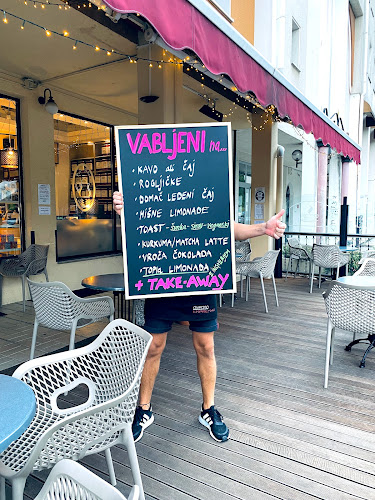 VABLJENI NA...
• KAVO ali ČAJ
• ROGLJIČKE
• DOMAČ LEDENI ČAJ
• HIŠNE LIMONADE
• TOAST - Šunka - Sir - Veganski
• KURKUMA/MATCHA LATTE
• VROČA ČOKOLADA
• TOPLA LIMONADA
+ TAKE-AWAY